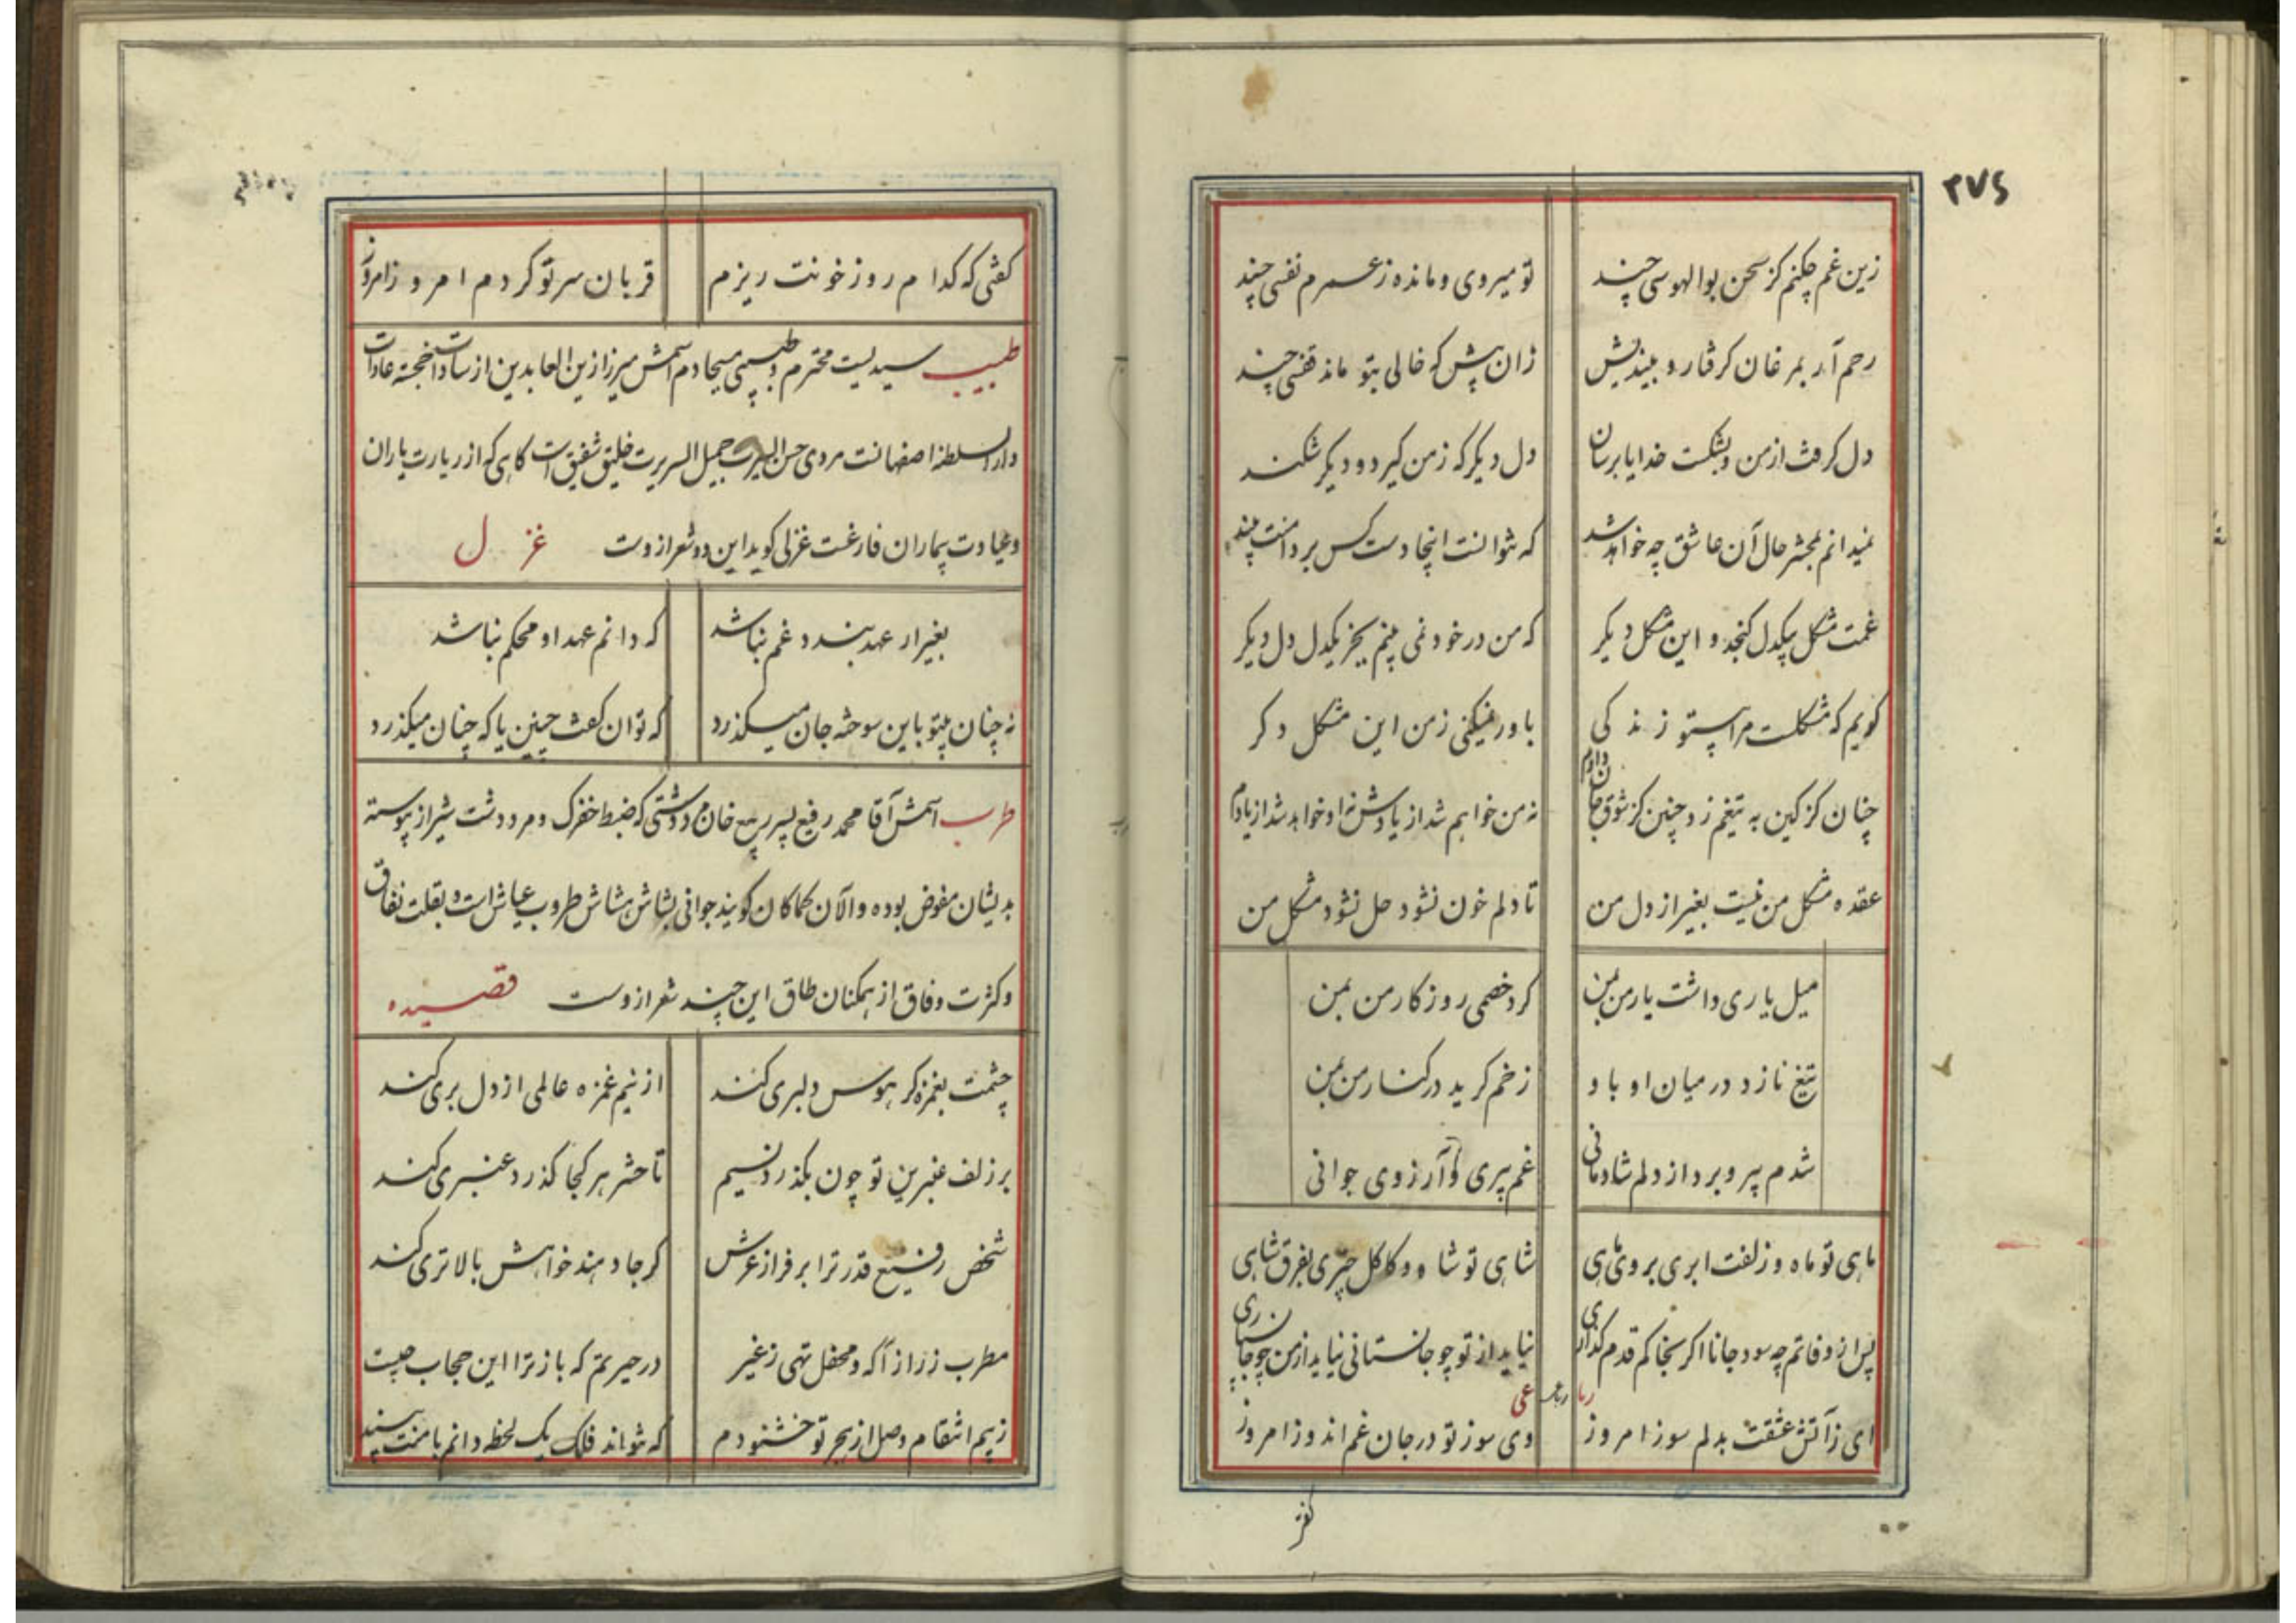 ۳۷۶
زین غم چکنم کز سخن بوالهوسی چند
تو میروی و مانده ز عمرم نفسی چند
رحم آر بمرغان کرفتار و بیندیش
زان پیش که خالی بتو ماند قفسی چند
دل کرفت از من و بشکست خدایا برسان
دل دیکر که ز من کیرد و دیکر شکند
نمیدانم بمحشر حال آن عاشق چه خواهد شد
که نتوانست اینجا دست کس بر دامنت بیند
غمت مشکل بیکدل کنجد و این مشکل دیکر
که من در خود نمی بینم بجز یکدل دل دیکر
کویم که مشکلست مرا بیتو زندکی
باور نمیکنی ز من این مشکل دکر
چنان کز کین به تیغم زد چنین کز شوق جان دادم
نه من خواهم شد از یادش نه او خواهد شد از یادم
عقده مشکل من نیست بغیر از دل من
تا دلم خون نشود حل نشود مشکل من
میل یاری داشت یار من بمن
کرد خصمی روزکار من بمن
تیغ نازد در میان او باو
زخم کرید در کنار من بمن
شدم پیر و برد از دلم شادمانی
غم پیری و آرزوی جوانی
ماهی تو ماه و زلفت ابری بروی ماهی
شاهی تو شا و و کاکل چتری بفرق شاهی
پس از وفاتم چه سود جانا اکر بخاکم قدم کذاری
نیاید از تو چو جانستانی نیاید از من چو جانسپاری
رباعی
ای ز آتش عشقت بدلم سوز امروز
وی سوز تو در جان غم اندوز امروز
کفتی که کدام روز خونت ریزم
قربان سر تو کردم امروز امروز
طبیب سیدیست محترم و طبیبی مسیحا دم اسمش میرزا زین العابدین از سادات خجسته عادات
دارالسلطنه اصفهانست مردی حسن السیرت جمیل السریرت خلیق شفیق است کاهی که از زیارت یاران
و عیادت بیماران فارغست غزلی کوید این دو شعر ازوست غزل
بغیر ار عهد بندد غم نباشد
که دانم عهد او محکم نباشد
نه چنان بیتو باین سوخته جان میکذرد
که توان کفت چنین یا که چنان میکذرد
طرب اسمش آقا محمد رفیع پسر ربیع خان مرودشتی که ضبط خفرک و مرودشت شیراز پیوسته
بدیشان مفوض بوده و الآن کماکان کویند جوانی بشاش هشاش طروب عیاش است و بقلت نفاق
و کثرت وفاق از همکنان طاق این چند شعر ازوست قصیده
چشمت بغمزه کر هوس دلبری کند
از نیم غمزه عالمی از دل بری کند
بر زلف عنبرین تو چون بکذرد نسیم
تا حشر هر کجا کذرد عنبری کند
شخص رفیع قدر ترا بر فراز عرش
کر جا دهند خواهش بالاتری کند
مطرب ز راز آکه و محفل تهی ز غیر
در حیرتم که باز ترا این حجاب چیست
ز بیم انتقام وصل از هجر تو خشنودم
که نتواند فلک یک لحظه دانم با منت بیند